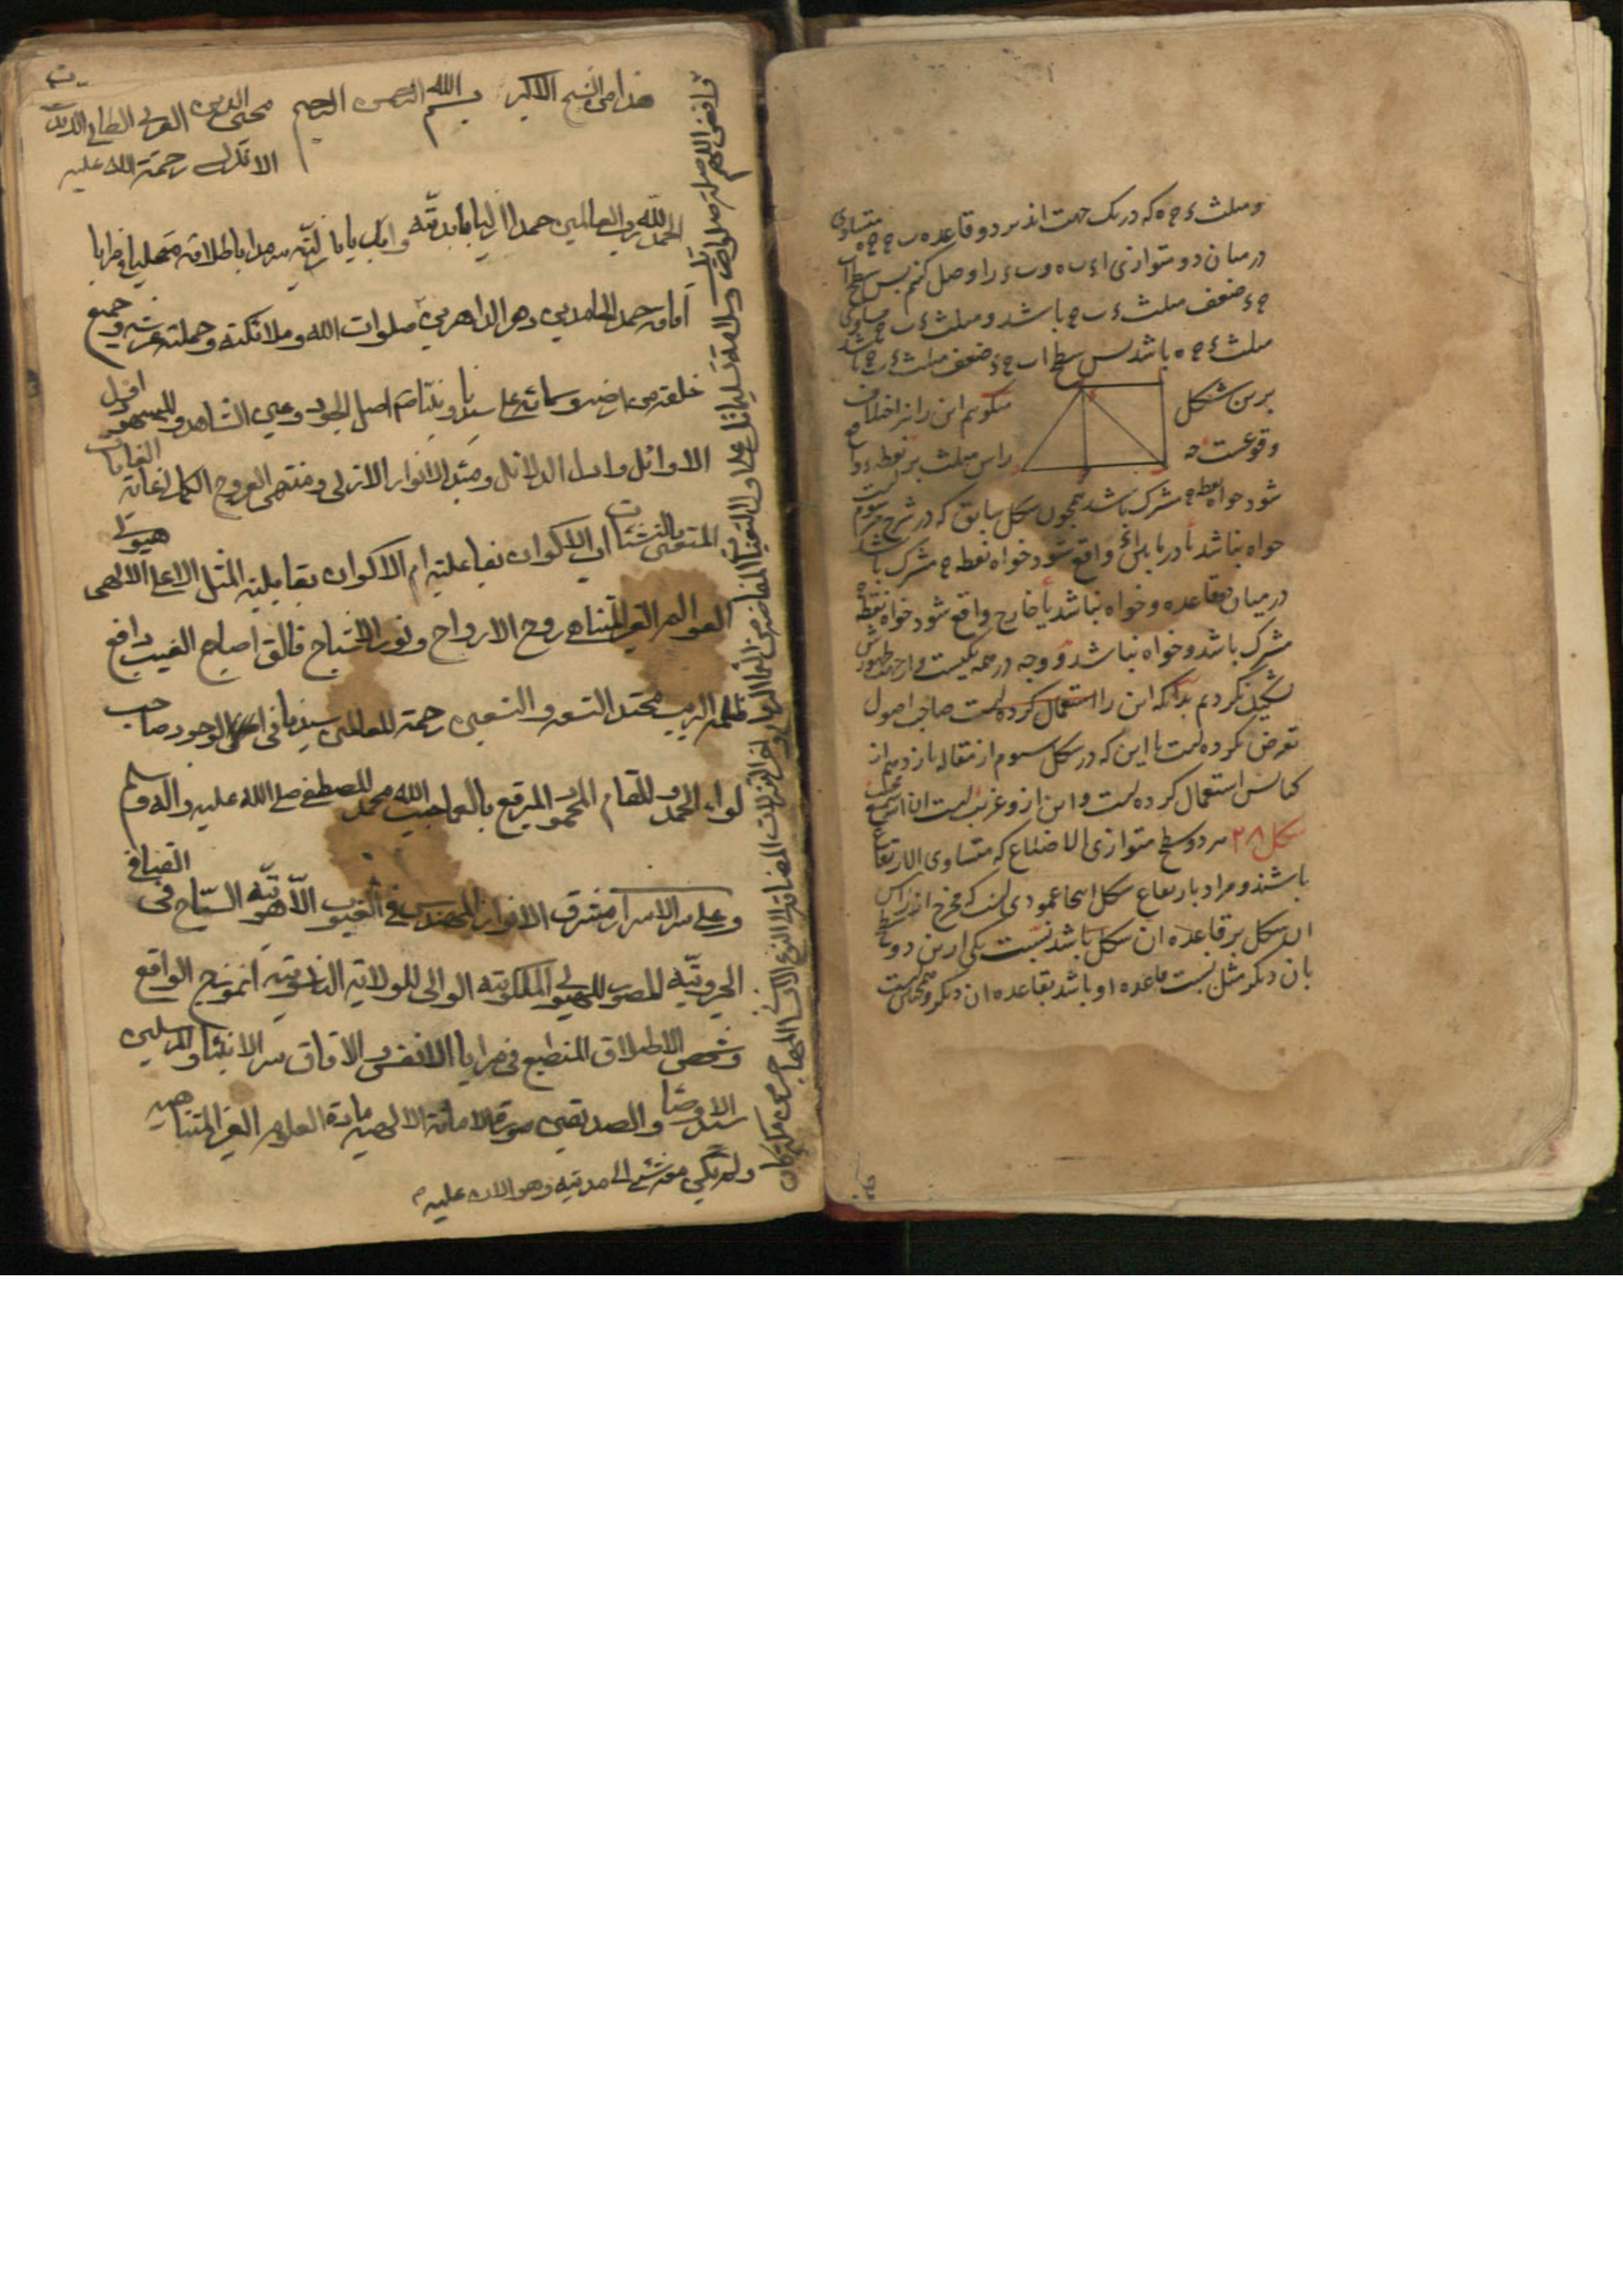 و مثلث ء ج ه که در یک جهت اند بر دو قاعده ب ج ج ه متساوی
در میان دو متوازی اء ب ه و ب ء را وصل کنیم پس سطح اب
ج ء ضعف مثلث ء ب ج باشد و مثلث ء ب ج مساوی
مثلث ء ج ه باشد پس سطح اب ج ء ضعف مثلث ء ج ه باشد
برین شکل میکویم این را نیز اختلاف
وقوعست چه راس مثلث بر نقطه ء واقع
شود خواه نقطه ج مشترک باشد همچون شکل سابق که در شرح مرسوم است
خواه نباشد یا در ما بین اء واقع شود خواه نقطه ج مشترک باشد
در میان دو قاعده و خواه نباشد یا خارج واقع شود خواه نقطه ج
مشترک باشد و خواه نباشد و وجه در همه یکیست و از جهة ظهورش
تشکیل نکردم بدانکه این را استعمال کرده است صاحب اصول
تعرض نکرده است با این که در شکل سوم از مقاله یازدهم از
کتابش استعمال کرده است و این ازو غریب است
شکل ۳۸ هر دو سطح متوازی الاضلاع که متساوی الارتفاع
باشند و مراد بارتفاع شکل اینجا عمودی است که مخرج از راس
ان شکل بر قاعده ان شکل باشد نسبت یکی ازین دو سطح
بان دیکر مثل نسبت قاعده او باشد بقاعده ان دیکر و همچنین است
هذا من الشیخ الاکبر بسم الله الرحمن الرحیم محی الدین العربی الطائی
الاندلسی رحمة الله علیه
الحمد لله رب العالمین حمدا ازلیا بابدیته وابدیا بازلیته سرمدا باطلاقه متجلیا فی مرایا
آفاقه حمد الحامدین دهر الداهرین صلوات الله وملائکته وحملة عرشه وجمیع
خلقه من ارضه وسمائه علی سیدنا ونبینا اصل الجود وعین الشاهد والمشهود اول
الاوائل وادل الدلائل ومبدء الانوار الازلی ومنتهی العروج الکمالی غایة الغایات
المتعین بالنشئات اب الاکوان بفاعلیة ام الاکوان بقابلیة المثل الاعلی الالهی هیولی
العوالم الغیر المتناهی روح الارواح ونور الاشباح فالق اصباح الغیب دافع
ظلمة الریب محتد التسعه والتسعین رحمة للعالمین سیدنا فی الوجود صاحب
لواء الحمد والمقام المحمود المبرقع بالعما حبیب الله محمد المصطفی صلی الله علیه واله وسلم
وعلی سر الاسرار مشرق الانوار المهندس فی الغیوب اللاهوتیه السیاح فی الفیافی
الجبروتیه المصور للهیولی الملکوتیه الوالی للولایة الناسوتیه انموذج الواقع
وشخص الاطلاق المنطبع فی مرایا الانفس والافاق سر الانبیاء والمرسلین
سید الاوصیاء والصدیقین صورة الامانة الالهیه مادة العلوم الغیر المتناهیه